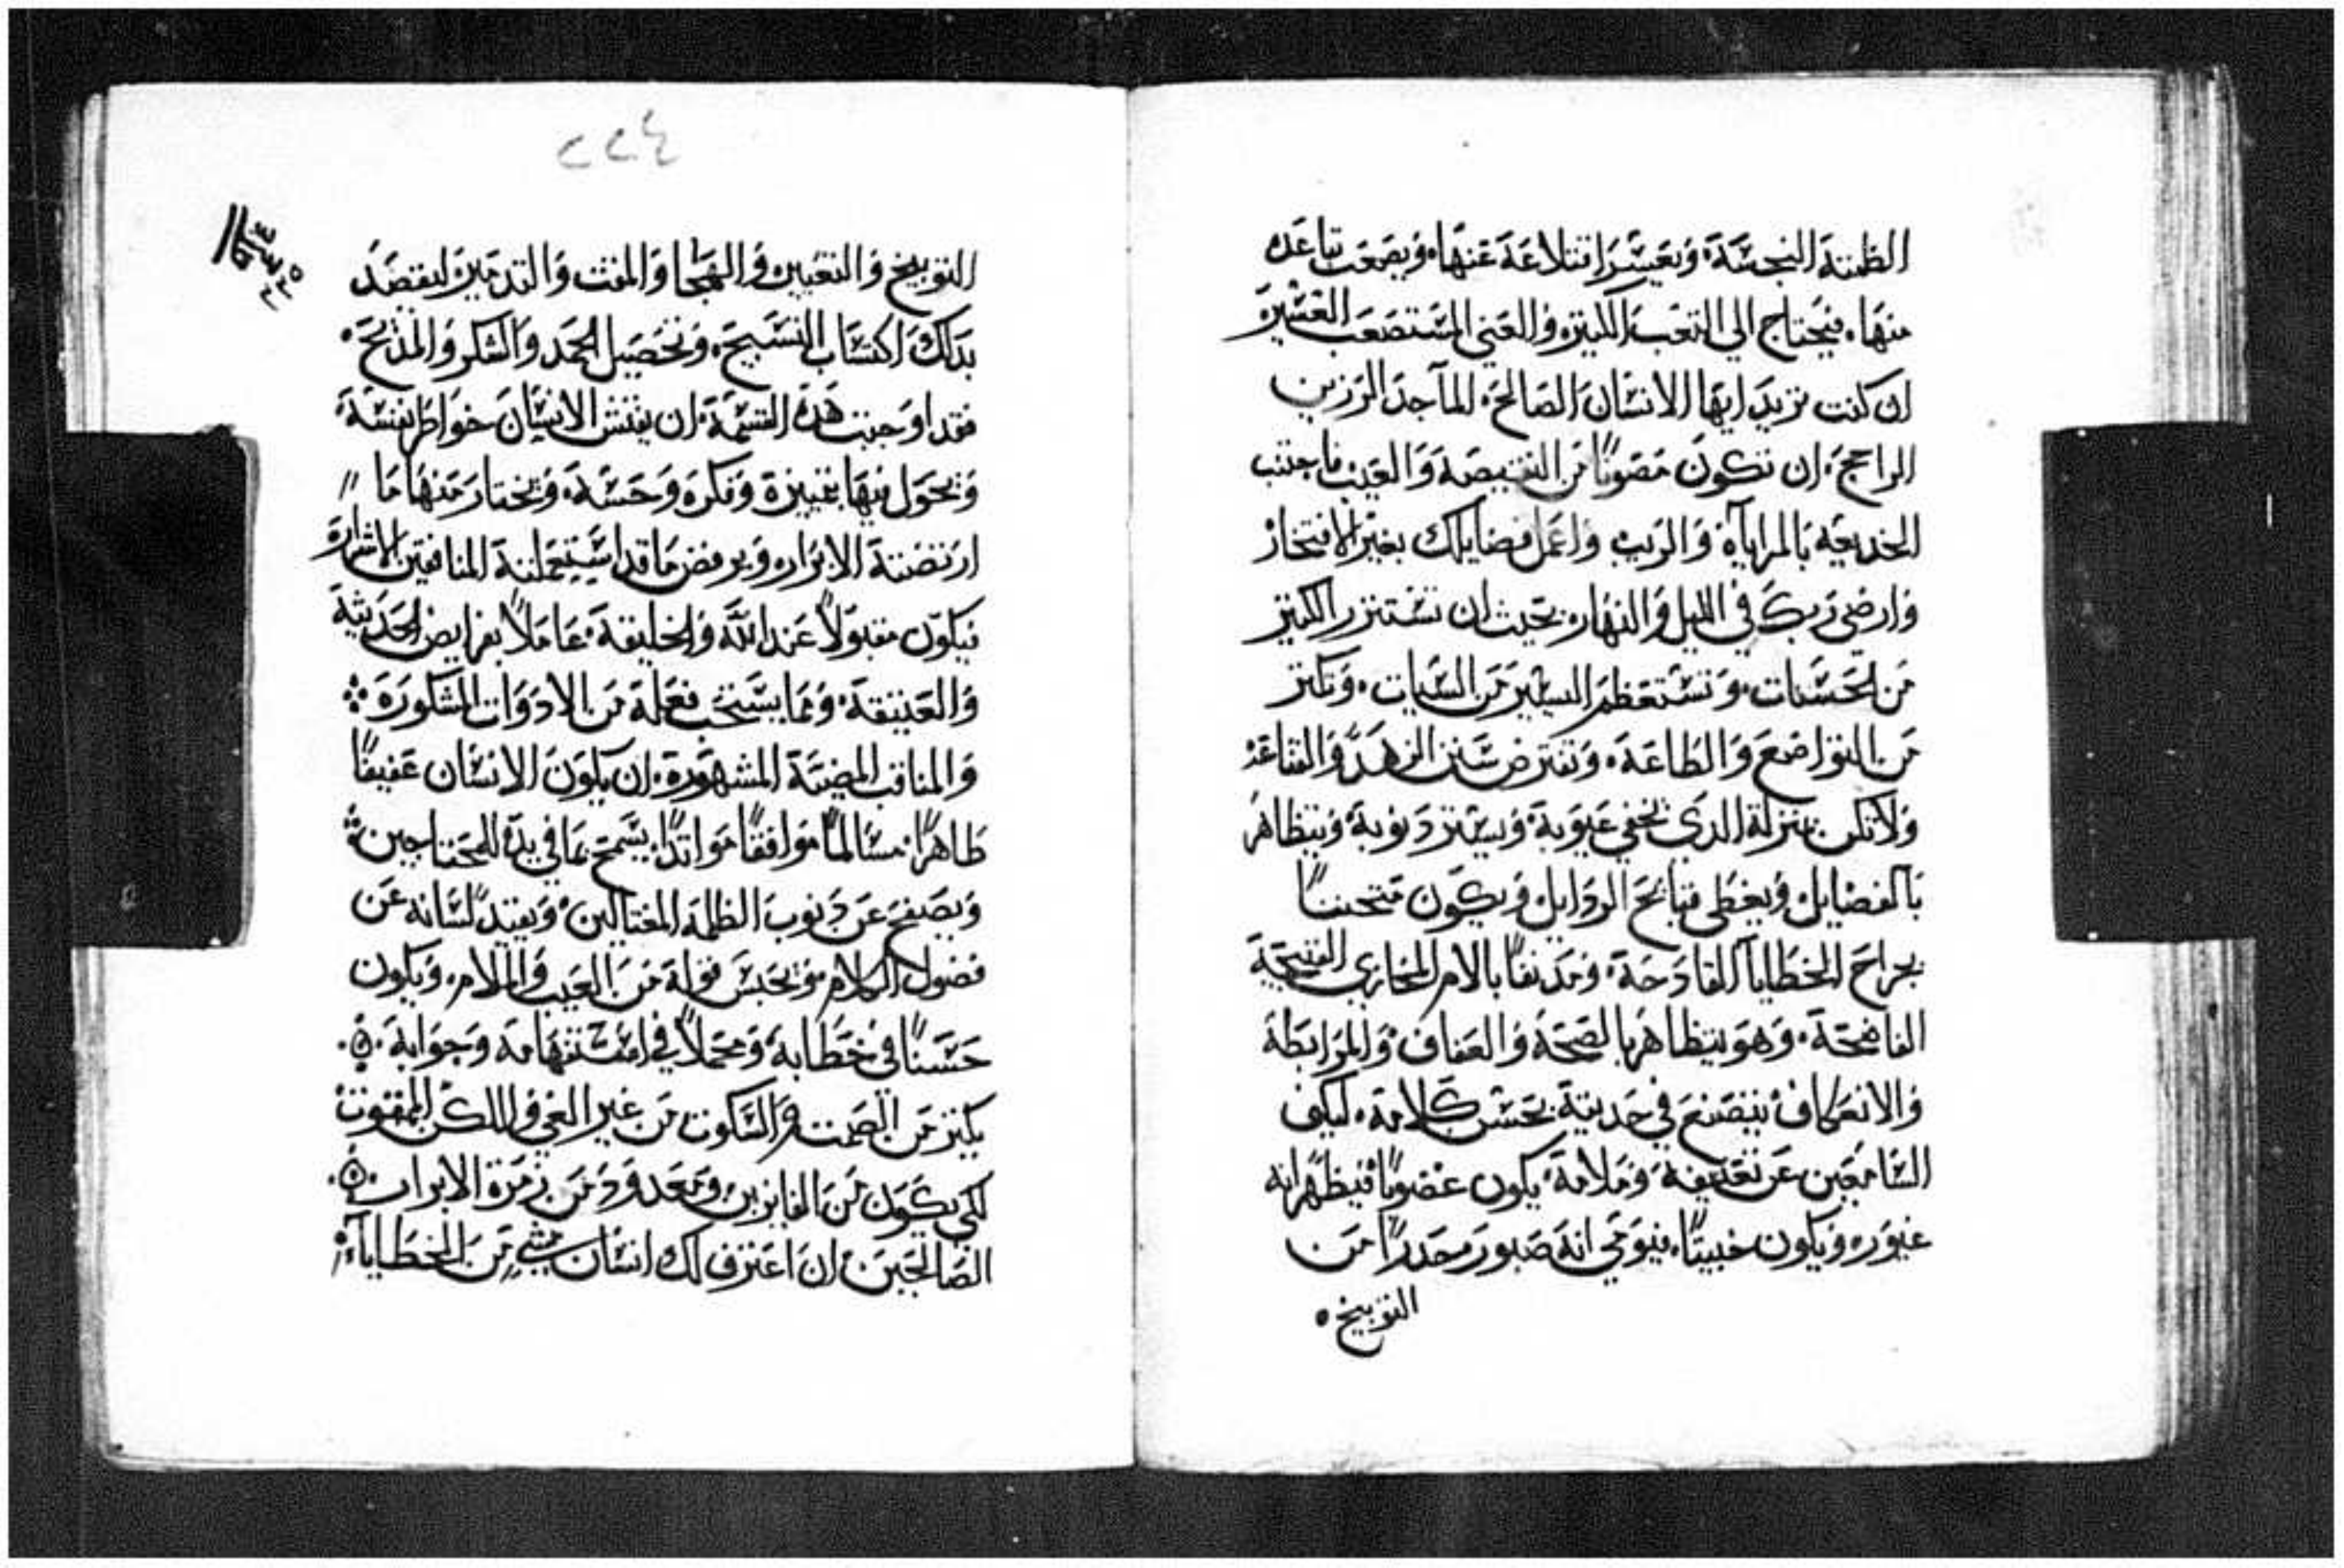 الظنة النجسة، ويعسر اقتلاعة عنها، ويصعب تباعده
منها، فيحتاج الي التعب الكثيره والعني المستصعب العسيره
ان كنت تريد ايها الانسان الصالح، الماجد الرزين
الراجح، ان تكون مصونًا من النقيصة والعيب فاجتنب
الخديعة بالمراياة والريب واعمل فضايلك بغير الافتخار
وارضي ربك في الليل والنهاره بحيث ان تستنزر الكثير
من الحسنات، وتستعظم اليسير من السيات، وتكثر
من التواضع والطاعة، وتفترض سنن الزهد والقناعة
ولا تكن بمنزلة الدي يخفي عيوبة، ويستر دنوبة، ويتظاهر
بالفضايل، ويغطي قبايح الردايل، ويكون مثخنًا
بجراح الخطايا الفادحة، ومدنفًا بالامر المخازي القبيحة
الفاضحة، وهو يتظاهر بالصحة والعفاف والمرابطة
والانعكاف يتصنع في حديثة بحسن كلامة، ليكف
السامعين عن تعنيفة وملامة، يكون غضوبًا فيظهر انه
غيوره ويكون خبيثًا، فيوحي انه صبور محدرًا من
التوبيخ ه
٢٢٤
التوبيخ والتعيير والهجا والمقت والتدمير ليقصد
بدلك اكتساب التسبيح، وتحصيل الحمد والشكر والمديح،
فقد اوجبت هده القسمة، ان يفتش الانسان خواطر نفسة،
ويجول فيها بتمييزة وفكره وحسة، ويختار منها ما
ارتضتة الابراره ويرفض ما قد استعملتة المنافقين الاشراره
فيكون مقبولاً عند الله والخليقة، عاملاً بفرايض الحديثة
والعتيقة، ومما يستحب فعلة من الادوات المشكورة
والمناقب المضيئة المشهورة، ان يكون الانسان عفيفًا
طاهرًا، مسالمًا موافقًا مواتدًا، يسمح بما في يدة للمحتاجين
ويصفح عن دنوب الظلمة المغتالين، ويقيد لسانه عن
فضول الكلام، ويحبس قولة من العيب والملام، ويكون
حسنًا في خطابة، ومجملاً في استفهامة وجوابة
يكثر من الصمت والسكوت من غير العي واللكن الممقوت
لكي يكون من الفايزين، ومعدود من زمرة الابرار
الصالحين، ان اعترف لك انسان بشي من الخطايا،